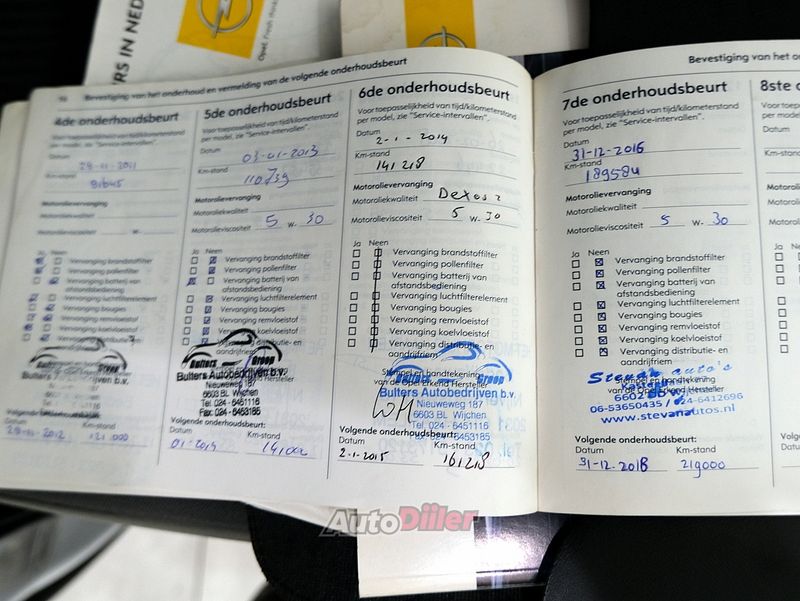 Opel. Fresh
RS IN NED
Bevestiging van het onderhoud en vermelding van de volgende onderhoudsbeurt
4de onderhoudsbeurt
Datum
Km-stand
Motorolievervanging
Motoroliekwaliteit
Motorolieviscositeit W-
Ja Neen
Vervanging brandstoffilter
Vervanging pollenfilter
Vervanging batterij van
afstandsbediening
Vervanging luchtfilterelement
Vervanging bougies
Vervanging remvloeistof
Vervanging koelvloeistof
Bulters Groep
Bulters Autobedrijven b.v.
Volgende onderhoudsbeurt:
Datum Km-stand
121.000
5de onderhoudsbeurt
Voor toepasselijkheid van tijd/kilometerstand
per model, zie "Service-intervallen".
Datum
03-01-2013
Km-stand
110739
Motorolievervanging
Motoroliekwaliteit
Motorolieviscositeit 5 W- 30
Ja Neen
Vervanging brandstoffilter
Vervanging pollenfilter
Vervanging batterij van
afstandsbediening
Vervanging luchtfilterelement
Vervanging bougies
Vervanging remvloeistof
Vervanging koelvloeistof
Vervanging distributie- en
aandrijfriem
Bulters Groep
Bulters Autobedrijven b.v.
Nieuweweg 187
6603 BL Wijchen
Tel. 024 - 6451116
Fax. 024 - 6453185
Volgende onderhoudsbeurt:
Datum Km-stand
6de onderhoudsbeurt
Voor toepasselijkheid van tijd/kilometerstand
per model, zie "Service-intervallen".
Datum
2-1-2014
Km-stand
141218
Motorolievervanging
Motoroliekwaliteit Dexos 2
Motorolieviscositeit 5 W- 30
Ja Neen
Vervanging brandstoffilter
Vervanging pollenfilter
Vervanging batterij van
afstandsbediening
Vervanging luchtfilterelement
Vervanging bougies
Vervanging remvloeistof
Vervanging koelvloeistof
Vervanging distributie- en
aandrijfriem
Stempel en handtekening
van de Opel Erkend Hersteller
Bulters Groep
Bulters Autobedrijven b.v.
Nieuweweg 187
6603 BL Wijchen
Tel. 024 - 6451116
Fax. 024 - 6453185
Volgende onderhoudsbeurt:
Datum Km-stand
2-1-2015 161218
Bevestiging van het o
7de onderhoudsbeurt
Voor toepasselijkheid van tijd/kilometerstand
per model, zie "Service-intervallen".
Datum
31-12-2016
Km-stand
189584
Motorolievervanging
Motoroliekwaliteit
Motorolieviscositeit 5 W- 30
Ja Neen
Vervanging brandstoffilter
Vervanging pollenfilter
Vervanging batterij van
afstandsbediening
Vervanging luchtfilterelement
Vervanging bougies
Vervanging remvloeistof
Vervanging koelvloeistof
Vervanging distributie- en
aandrijfriem
Stevan auto's
Stempel en handtekening
van de Opel Erkend Hersteller
06-53650435 / 024-6412696
www.stevanautos.nl
Volgende onderhoudsbeurt:
Datum Km-stand
31-12-2018 219000
8ste o
Voor toepas
per model,
Datum
Km-stand
Motorolie
Motorolie
Motorolie
Ja Nee
AutoDiiler